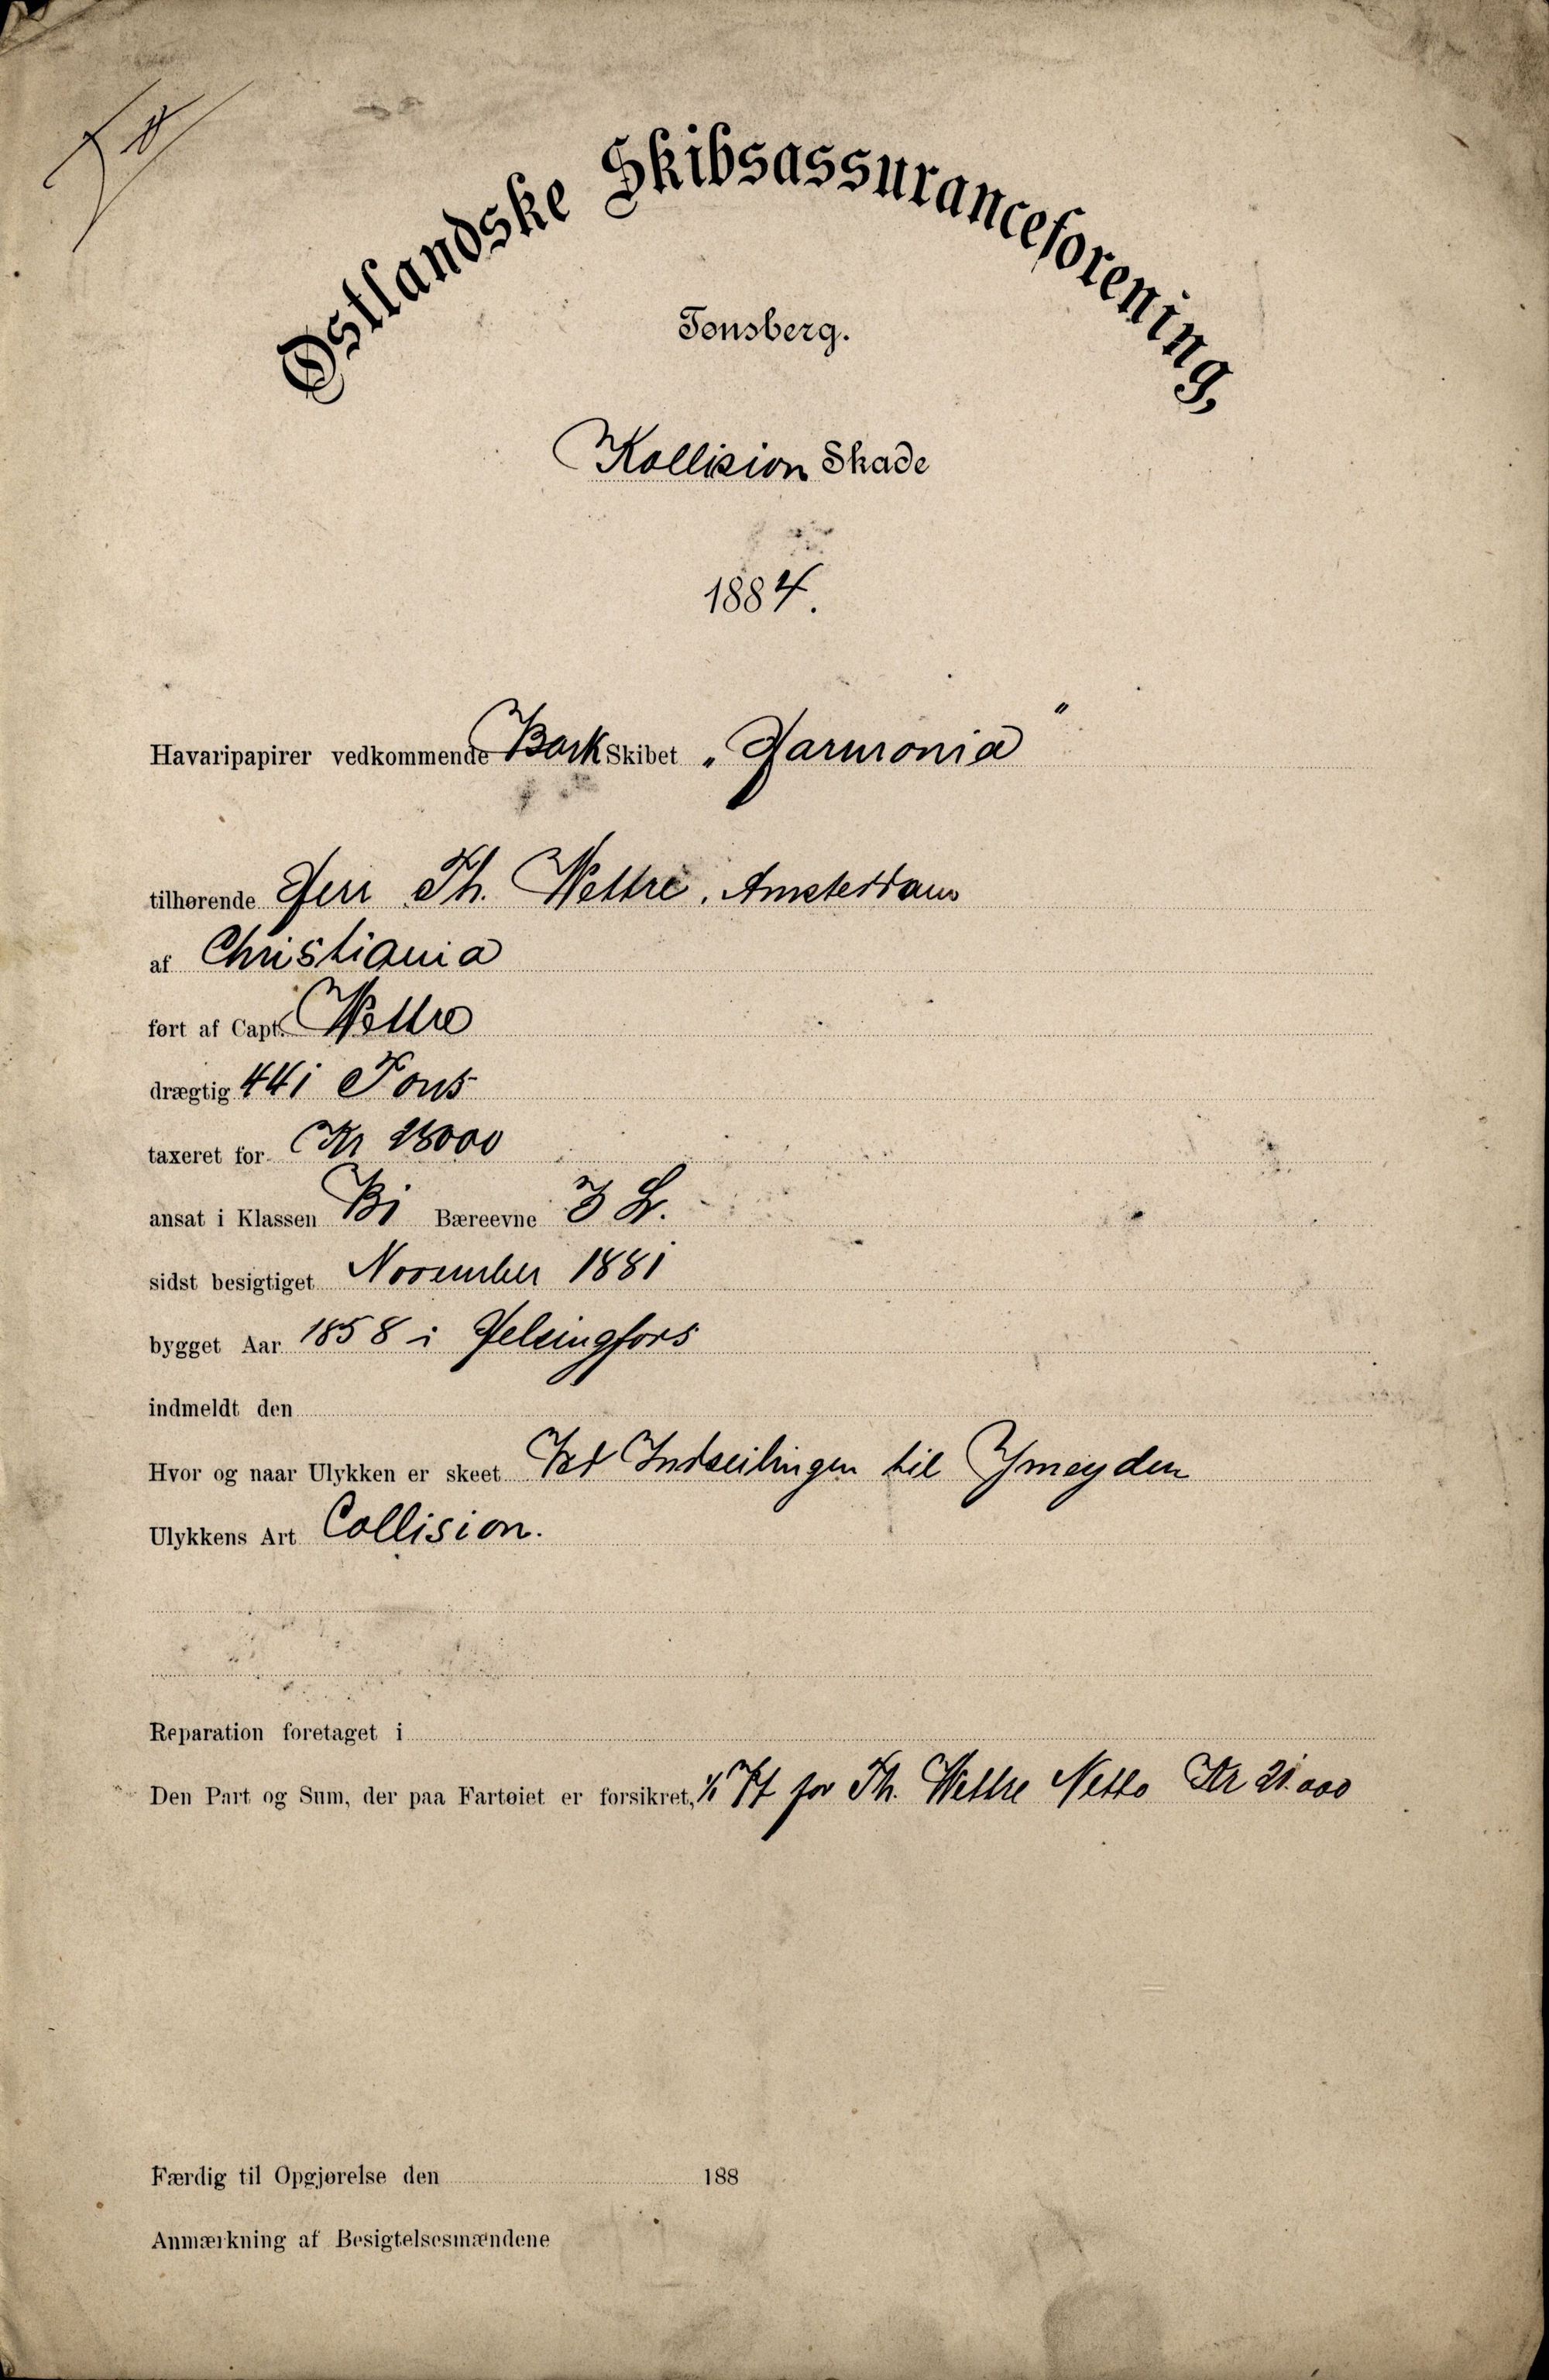 Østlandske Skibsassuranceforening,
Tønsberg.
Kollision Skade
1884.
Havaripapirer vedkommende Bark Skibet „Harmonia"
tilhørende Herr Th. Wettre, Amsterdam
af Christiania
ført af Capt. Wettre
drægtig 441 Tons
taxeret for Kr 28000
ansat i Klassen B1 Bæreevne 3 L.
sidst besigtiget November 1881
bygget Aar 1858 i Helsingfors
indmeldt den
Hvor og naar Ulykken er skeet Ved Indseilingen til Ymeyden
Ulykkens Art Collision.
Reparation foretaget i
Den Part og Sum, der paa Fartøiet er forsikret, for Th. Wettre Netto Kr 21.000
Færdig til Opgjørelse den 188
Anmærkning af Besigtelsesmændene